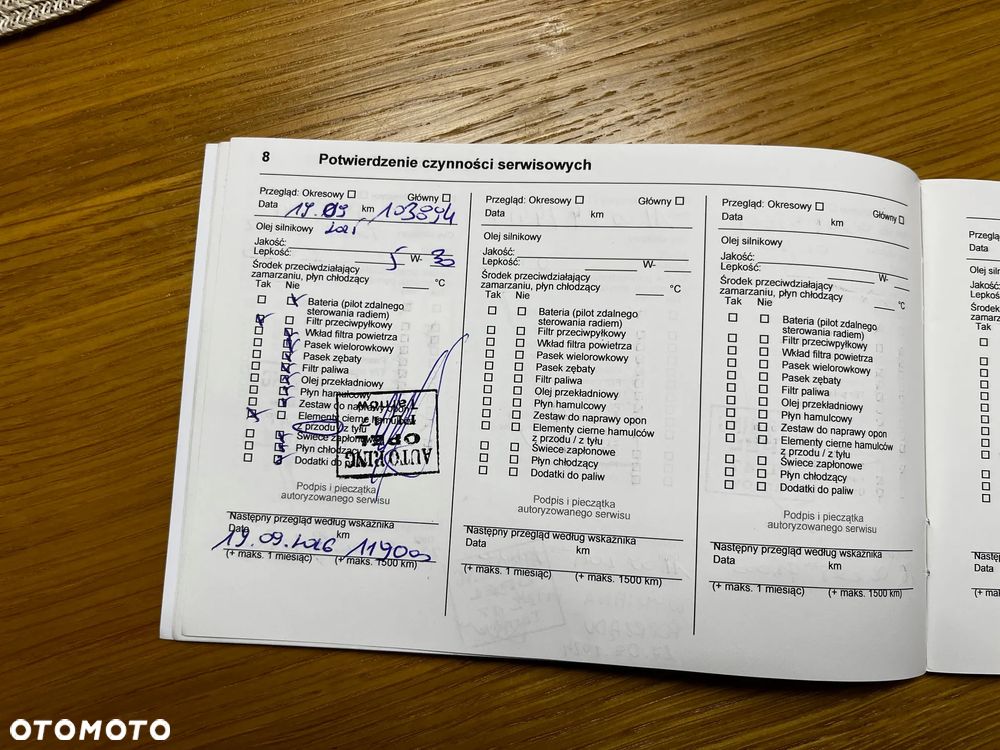 8 Potwierdzenie czynności serwisowych
Przegląd: Okresowy Główny
Data 19.09 km 103894
2025
Olej silnikowy
Jakość:
Lepkość: 5 W- 30
Środek przeciwdziałający
zamarzaniu, płyn chłodzący °C
Tak Nie
Bateria (pilot zdalnego
sterowania radiem)
Filtr przeciwpyłkowy
Wkład filtra powietrza
Pasek wielorowkowy
Pasek zębaty
Filtr paliwa
Olej przekładniowy
Płyn hamulcowy
Zestaw do naprawy opon
Elementy cierne hamulców
z przodu / z tyłu
Świece zapłonowe
Płyn chłodzący
Dodatki do paliw
AUTORING
OPEL
Podpis i pieczątka
autoryzowanego serwisu
Następny przegląd według wskaźnika
Data km
19.09.2026 119000
(+ maks. 1 miesiąc) (+ maks. 1500 km)
Przegląd: Okresowy Główny
Data km
Olej silnikowy
Jakość:
Lepkość: W-
Środek przeciwdziałający
zamarzaniu, płyn chłodzący °C
Tak Nie
Bateria (pilot zdalnego
sterowania radiem)
Filtr przeciwpyłkowy
Wkład filtra powietrza
Pasek wielorowkowy
Pasek zębaty
Filtr paliwa
Olej przekładniowy
Płyn hamulcowy
Zestaw do naprawy opon
Elementy cierne hamulców
z przodu / z tyłu
Świece zapłonowe
Płyn chłodzący
Dodatki do paliw
Podpis i pieczątka
autoryzowanego serwisu
Następny przegląd według wskaźnika
Data km
(+ maks. 1 miesiąc) (+ maks. 1500 km)
Przegląd: Okresowy Główny
Data km
Olej silnikowy
Jakość:
Lepkość: W-
Środek przeciwdziałający
zamarzaniu, płyn chłodzący °C
Tak Nie
Bateria (pilot zdalnego
sterowania radiem)
Filtr przeciwpyłkowy
Wkład filtra powietrza
Pasek wielorowkowy
Pasek zębaty
Filtr paliwa
Olej przekładniowy
Płyn hamulcowy
Zestaw do naprawy opon
Elementy cierne hamulców
z przodu / z tyłu
Świece zapłonowe
Płyn chłodzący
Dodatki do paliw
Podpis i pieczątka
autoryzowanego serwisu
Następny przegląd według wskaźnika
Data km
(+ maks. 1 miesiąc) (+ maks. 1500 km)
Data
Tak
Data
OTOMOTO